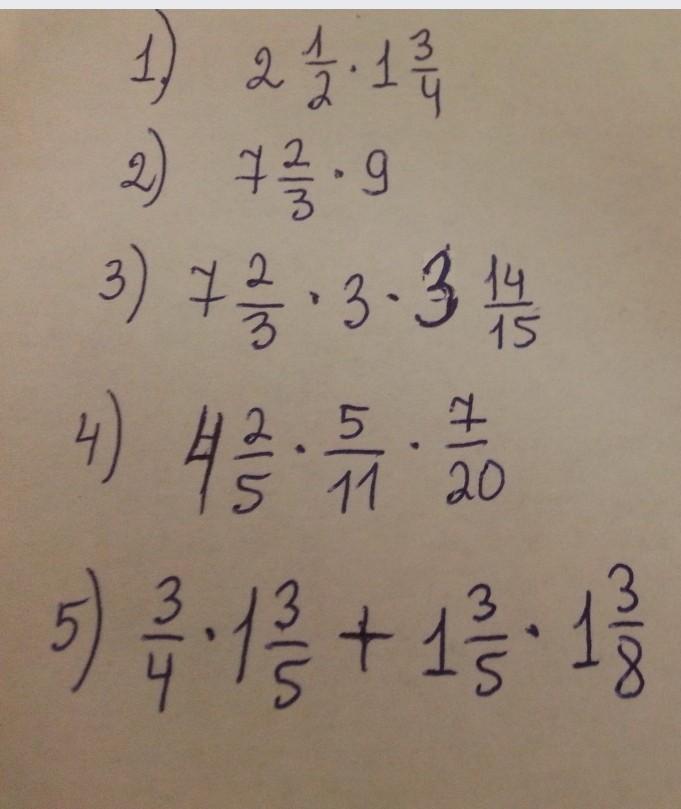 1) 2 1/2 · 1 3/4
2) 7 2/3 · 9
3) 7 2/3 · 3 · 3 14/15
4) 4 2/5 · 5/11 · 7/20
5) 3/4 · 1 3/5 + 1 3/5 · 1 3/8